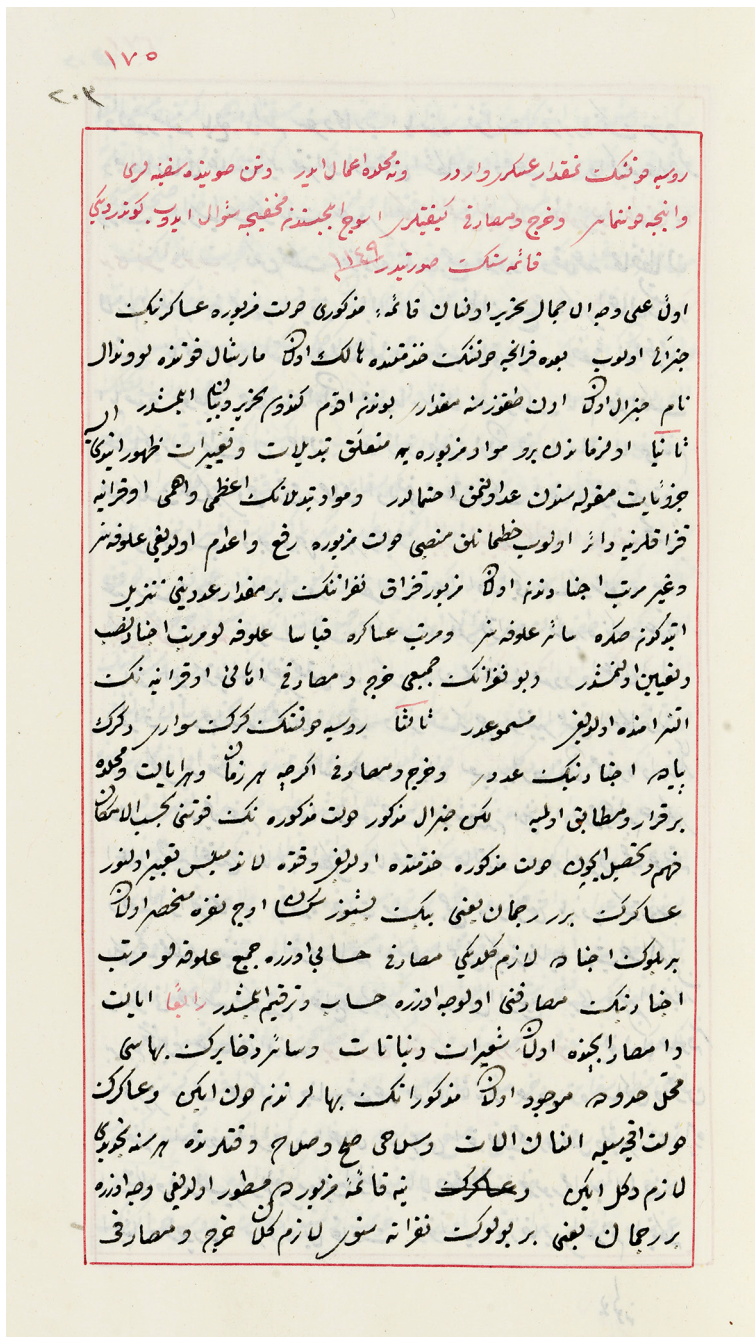 ١٧٥
٢٠٣
روسیه دولتنك نمقدار عسكری واردر و نه محلده اعمال ایدر و تن صوینده سفینه لری
و اینجه دونتماسی و خرج و مصارفی كیفیتلری اسوج ایلچیسندن مخفیجه سؤال ایدوب كوندردیكی
قائمه سنك صورتیدر ١١٤٩
اولا علی وجه الاجمال تحریر اولنان قائمۀ مذكوری دولت مزبوره عساكرینك
جنرالی اولوب بعده فرانچه دولتنك خدمتنده هالك اولان مارشال قونده لووندال
نام جنرال اولان اون طقوز سنه مقداری بوندن اقدم كندوم تحریر و بیان ایلمشدر
ثانیا اول زماندن برو مواد مزبوره یه متعلق تبدیلات و تغییرات ظهور ایتدیكی
جزئیات مقوله سندن عد اولنمق احتمالدر و مواد تبدلاتك اعظمی و اهمی اوقرانیه
قزاقلرینه دائر اولوب خطمانلق منصبی دولت مزبوره رفع و اعدام اولدیغی علوفه سز
و غیر مرتب اجنادندن اولان مزبور قزاق نفراتنك بر مقدار عددینی تنزیل
ایتدكدن صكره سائر علوفه سز و مرتب عساكره قیاسا علوفه لو مرتب اجناد نصب
و تعیین اولنمشدر و بو نفراتك جمیعی خرج و مصارفی اهالئ اوقرانیه نك
التزامنده اولدیغی مسموعدر ثالثا روسیه دولتنك كرك سواری و كرك
پیاده اجنادینك عددی و خرج و مصارفی اكرچه هر زمان و هر ایالت و محلده
برقرار و مطابق اولمیه لكن جنرال مذكور دولت مذكوره نك قوتنی بحسب الامكان
فهم و تحصیل ایچون دولت مذكوره خدمتنده اولدیغی وقتده لاندمیلیس تعبیر اولنور
عساكرك برر رجمان یعنی بیك بشیوز سكسان اوچ نفره منحصر اولان
بر بلوك اجناده لازم كلدیكی مصارفی حسابی اوزره جمیع علوفه لو مرتب
اجنادینك مصارفنی اول وجه اوزره حساب و ترقیم ایلمشدر رابعا ایالت
و امصار ایچنده اولان شعیرات و نباتات و سائر ذخایرك بهاسی
محل حدوده موجود اولان مذكوراتك بهالرندن دون ایكن و عساكرك
دولت اقچه سیله النان آلات و سلاحی صلح و صلاح وقتلرنده هر سنه تجدیدی
لازم دكل ایكن و عساكرك ینه قائمۀ مزبورده مسطور اولدیغی وجه اوزره
بر رجمان یعنی بر بولوك نفراته سنوی لازم كلان خرج و مصارفی